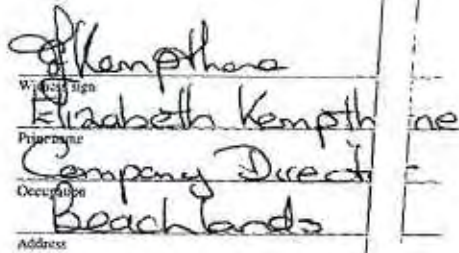 Kempthorne
Witness sign
Elizabeth Kempthorne
Print name
Company Director
Occupation
Beachlands
Address